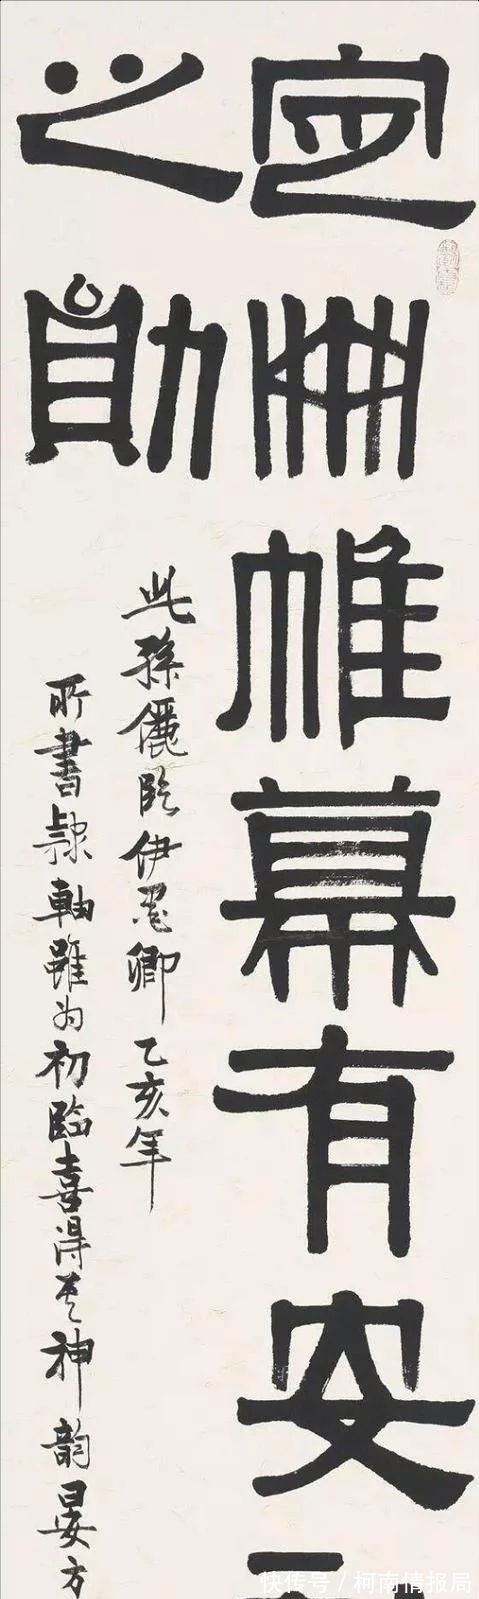 定冊帷幕有安
之勛
此孫儷臨伊墨卿乙亥年
所書隸軸雖为初臨喜得其神韵晏方
快传号 / 柯南情报局